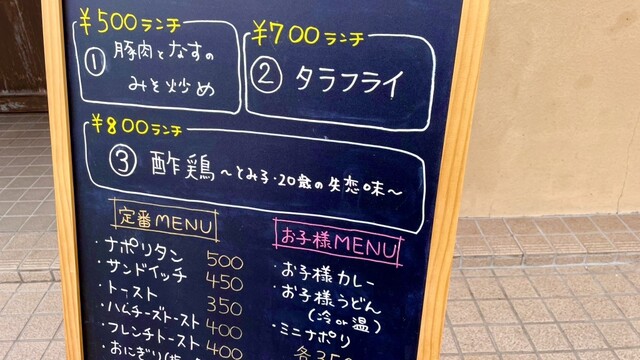 ¥500ランチ
① 豚肉となすの
みそ炒め
¥700ランチ
② タラフライ
¥800ランチ
③ 酢鶏 〜とみ子・20歳の失恋味〜
定番MENU
・ナポリタン 500
・サンドイッチ 450
・トースト 350
・ハムチーズトースト 400
・フレンチトースト 400
・おにぎり
お子様MENU
・お子様カレー
・お子様うどん
(冷or温)
・ミニナポリ
各350